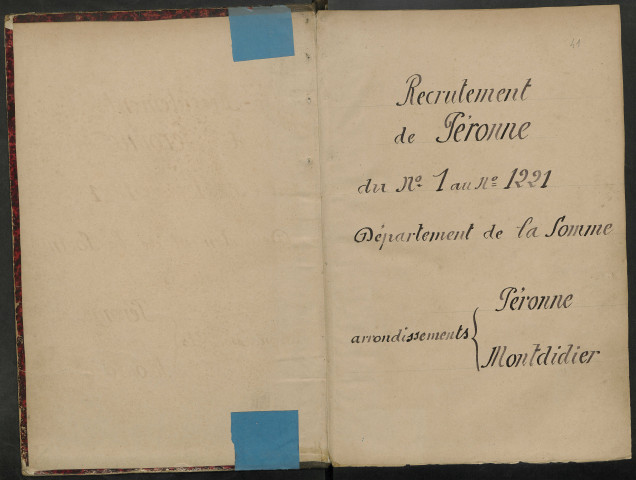 Recrutement
de Péronne
du Nº 1 au Nº 1221
Département de la Somme
arrondissements { Péronne
Montdidier